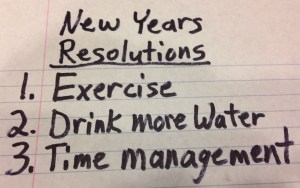 New Years
Resolutions
1. Exercise
2. Drink more Water
3. Time management